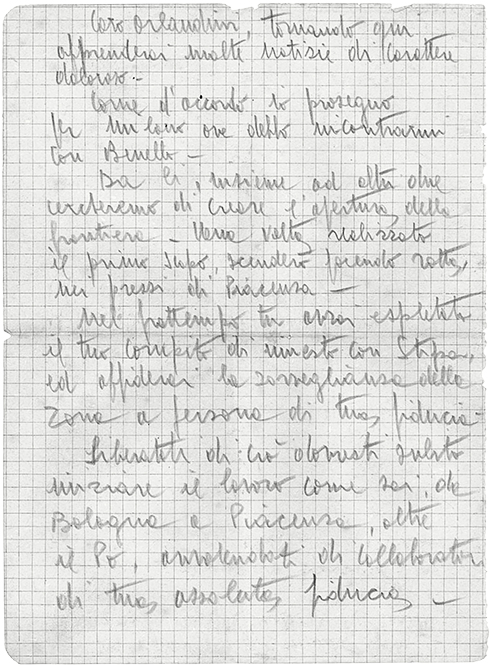 Caro Orlandini, tornando qui
apprenderai molte notizie di carattere
doloroso.-
Come d'accordo: io proseguo
per Milano ove debbo incontrarmi
con Binello -
Da lì, insieme ad altri due
cercheremo di creare l'apertura della
frontiera - Una volta realizzato
il primo scopo, scenderò facendo rotta,
nei pressi di Piacenza -
Nel frattempo tu avrai espletato
il tuo compito di innesto con
ed affiderai la sorveglianza della
zona a persona di tua fiducia -
Liberatoti di ciò dovresti subito
iniziare il lavoro come sai, da
Bologna a Piacenza, oltre
il Po, avvalendoti di collaboratori
di tua assoluta fiducia -